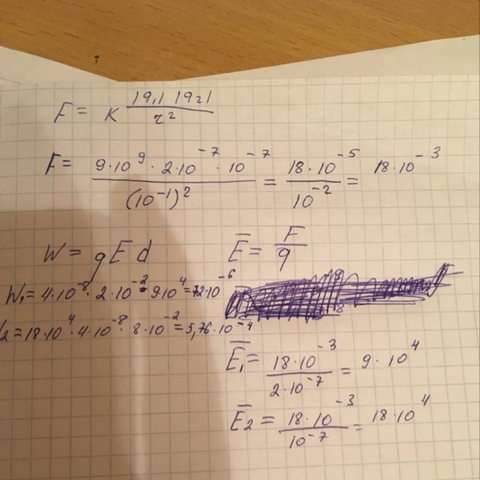 F = K |q₁| |q₂| / r²
F = 9·10⁹·2·10⁻⁷·10⁻⁷ / (10⁻¹)² = 18·10⁻⁵ / 10⁻² = 18·10⁻³
W = qEd
W₁ = 4·10⁻⁸·2·10⁻²·9·10⁴ = 72·10⁻⁶
2 = 18·10⁴·4·10⁻⁸·8·10⁻² = 5,76·10⁻⁴
E̅ = F / q
E̅₁ = 18·10⁻³ / 2·10⁻⁷ = 9·10⁴
E̅₂ = 18·10⁻³ / 10⁻⁷ = 18·10⁴